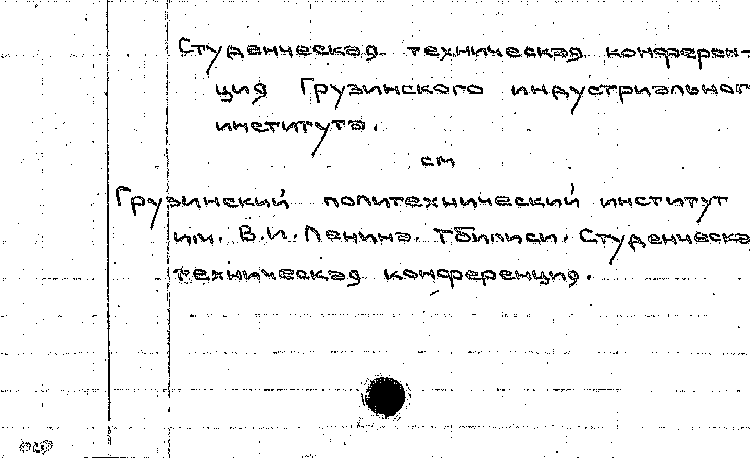 Студенческая техническая конферен-
ция Грузинского индустриального
института.
см
Грузинский политехнический институт
им. В.И. Ленина. Тбилиси. Студенческа
техническая конференция.